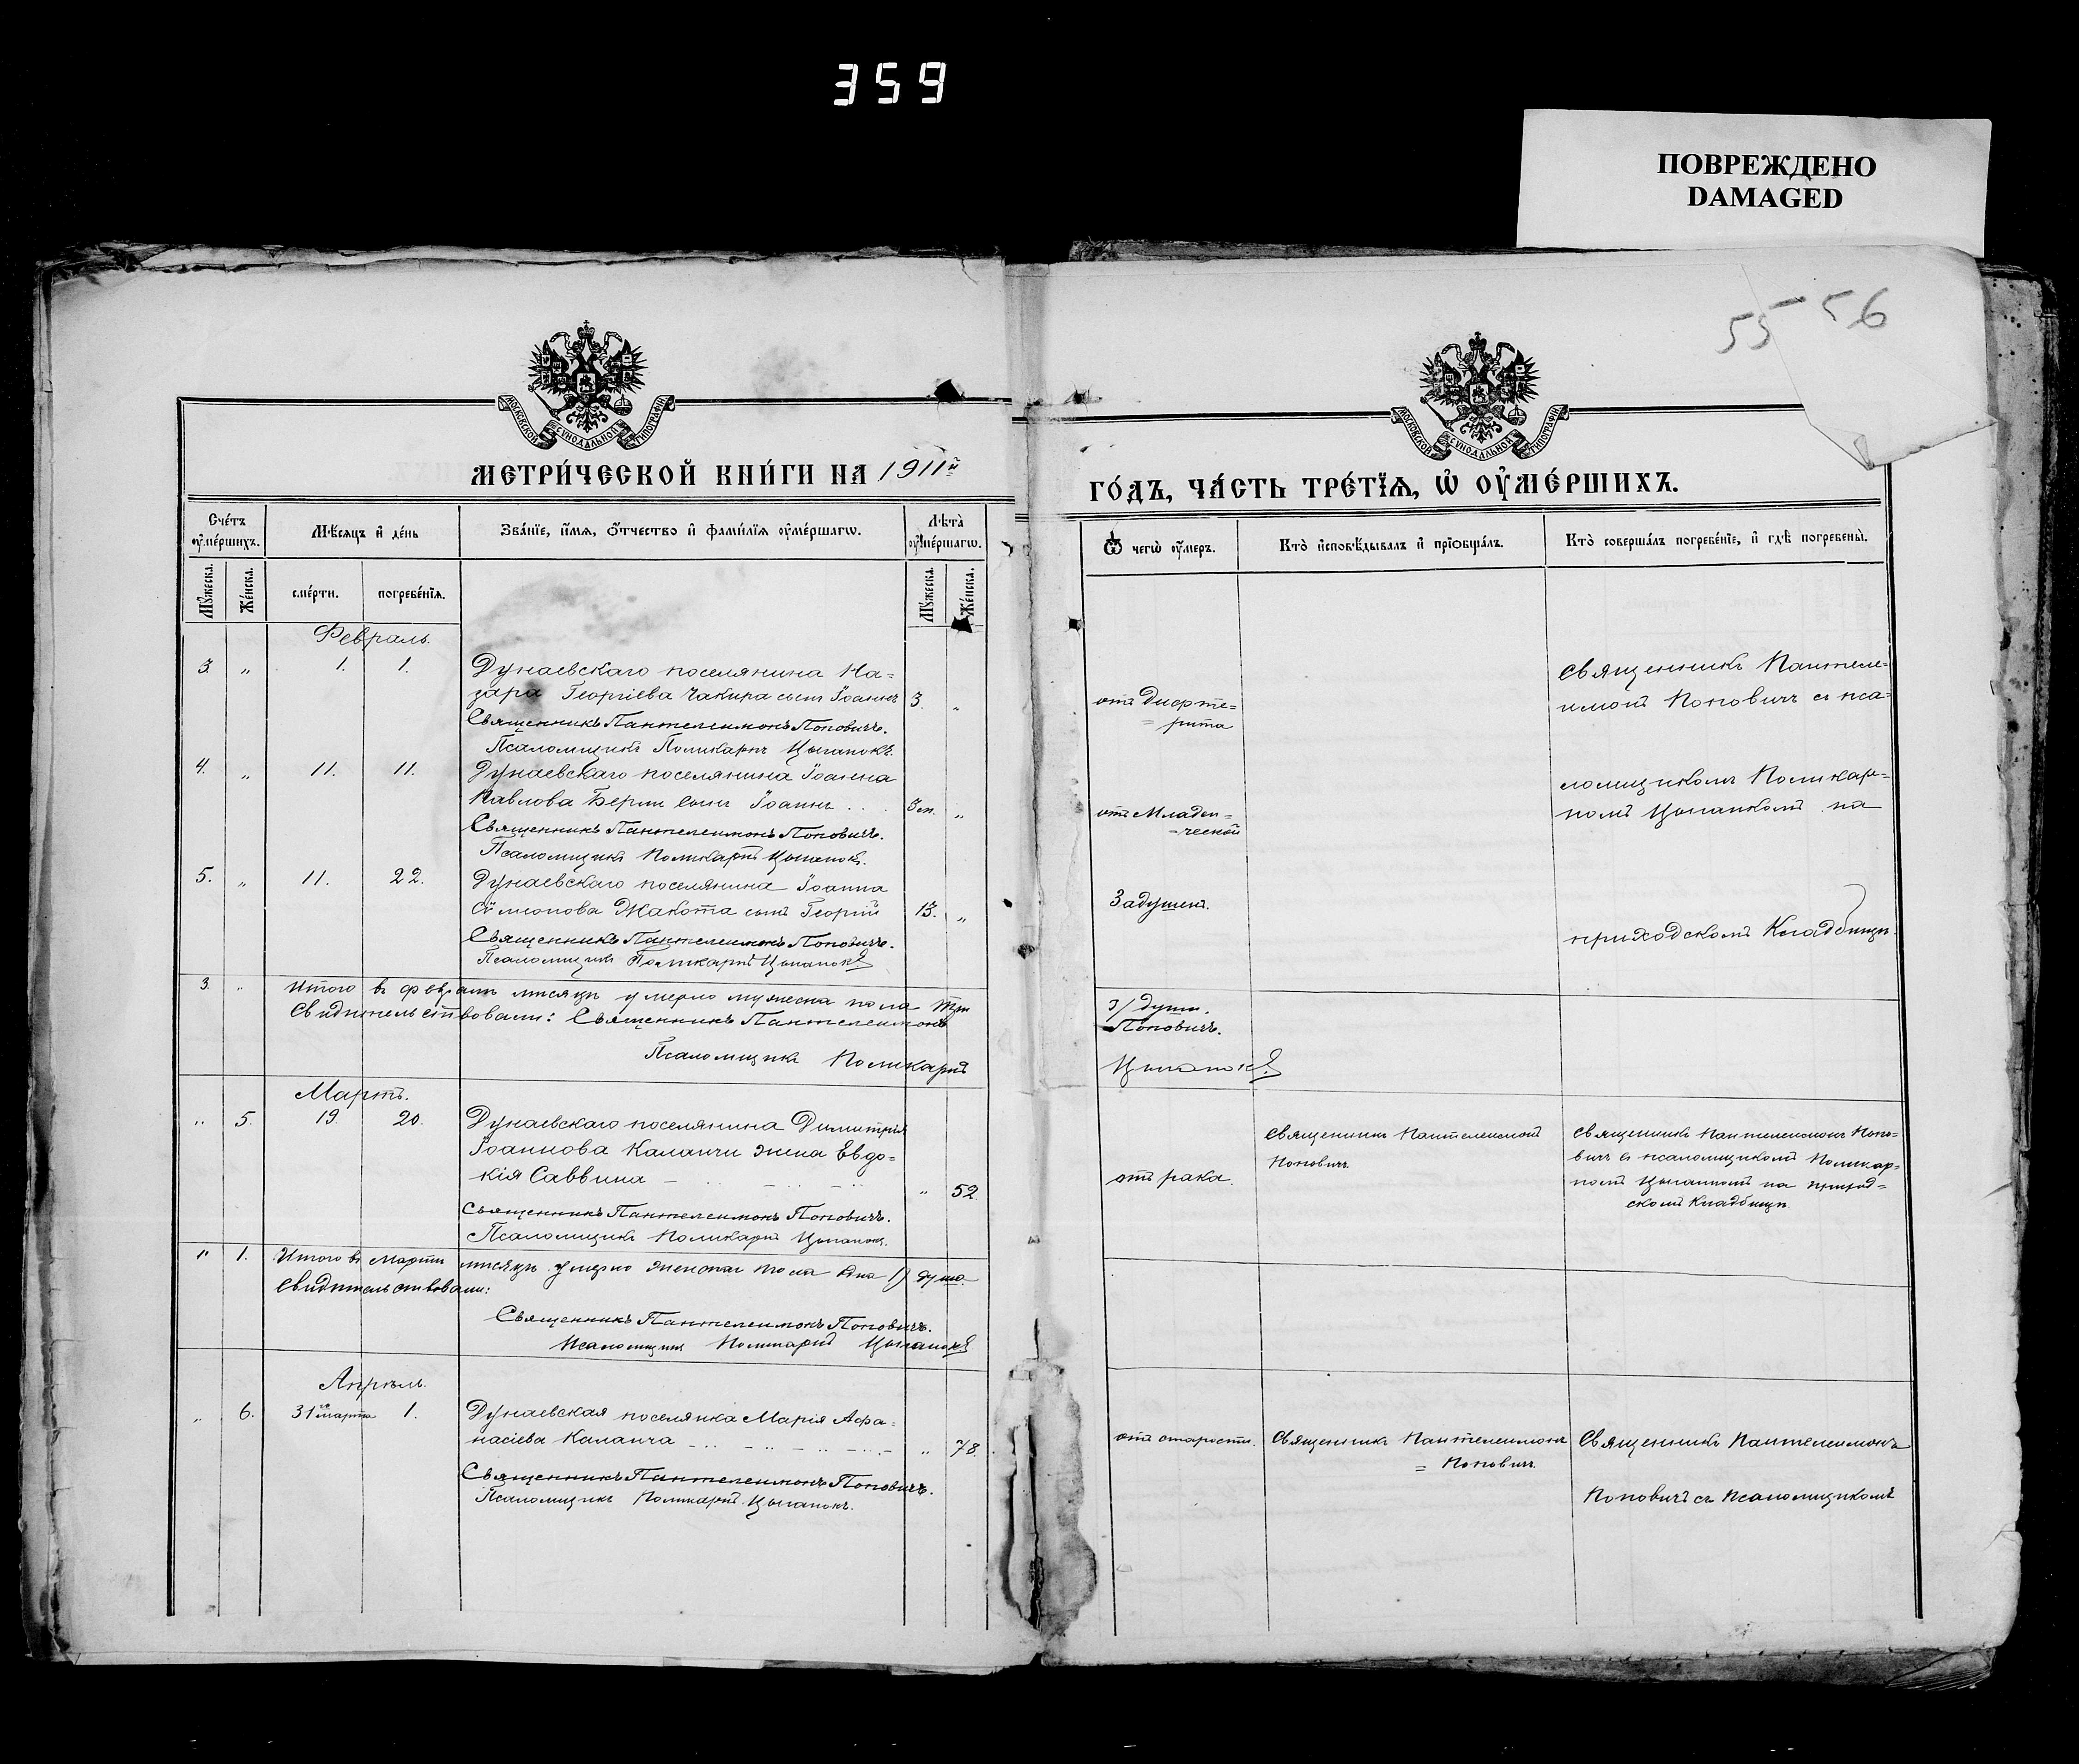 359
ПОВРЕЖДЕНО
DAMAGED
55 56
МОСКОВСКОЙ СѴНОДАЛЬНОЙ ТИПОГРАФІИ
МОСКОВСКОЙ СѴНОДАЛЬНОЙ ТИПОГРАФІИ
МЕТРИ́ЧЕСКОЙ КНИ́ГИ НА 1911й
ГО́ДЪ, ЧА́СТЬ ТРЕ́ТІЯ, Ѡ ОУМЕ́РШИХЪ.
Сче́тъ оуме́ршихъ.
Мѣ́сяцъ и де́нь
Зва́ніе, и́мя, о́тчество и фами́лія оуме́ршагѡ.
Лѣта̀ оуме́ршагѡ.
Ѿ чегѡ̀ оу́меръ.
Кто̀ исповѣ́дывалъ и пріобща́лъ.
Кто̀ соверша́лъ погребе́ніе, и гдѣ̀ погребены̀.
Му́жеска.
Же́нска.
сме́рти.
погребе́нія.
Му́жеска.
Же́нска.
Февраль.
3. „ 1. 1. Дунаевскаго поселянина На=
зара Георгіева Чакира сынъ Іоаннъ 3. „
Священникъ Пантелеимонъ Поповичъ.
Псаломщикъ Поликарпъ Цыганокъ.
отъ Дифте=
=рита
Священникъ Пантеле=
имонъ Поповичъ съ пса=
4. „ 11. 11. Дунаевскаго поселянина Іоанна
Павлова Берли сынъ Іоаннъ . . . „
Священникъ Пантелеимонъ Поповичъ.
Псаломщикъ Поликарпъ Цыганокъ.
отъ Младен=
=ческой
ломщикомъ Поликар=
помъ Цыганкомъ на
5. „ 11. 22. Дунаевскаго поселянина Іоанна
Симеонова Жакота сынъ Георгій 13. „
Священникъ Пантелеимонъ Поповичъ.
Псаломщикъ Поликарпъ Цыганокъ
Задушен.
приходскомъ Кладбищѣ.
3. „ Итого въ февралѣ мѣсяцѣ умерло мужеска пола три
3/ души.
Свидѣтельствовали: Священникъ Пантелеимонъ
Поповичъ.
Псаломщикъ Поликарпъ
Цыганокъ.
Мартъ.
„ 5. 19. 20. Дунаевскаго поселянина Димитрія
Іоаннова Каланчи жена Евдо=
кія Саввина „ 52.
Священникъ Пантелеимонъ Поповичъ.
Псаломщикъ Поликарпъ Цыганокъ.
отъ рака.
Священникъ Пантелеимонъ
Поповичъ
Священникъ Пантелеимонъ Попо=
вичъ съ псаломщикомъ Поликар=
помъ Цыганкомъ на приход=
скомъ Кладбищѣ.
„ 1. Итого въ Мартѣ мѣсяцѣ умерло женска пола одна 1) душа.
Свидѣтельствовали:
Священникъ Пантелеимонъ Поповичъ.
Псаломщикъ Поликарпъ Цыганокъ
Апрѣль.
„ 6. 31го марта 1. Дунаевская поселянка Марія Афа=
насіева Каланча „ 78.
Священникъ Пантелеимонъ Поповичъ.
Псаломщикъ Поликарпъ Цыганокъ.
отъ старости.
Священникъ Пантелеимонъ
= Поповичъ
Священникъ Пантелеимонъ
Поповичъ съ Псаломщикомъ